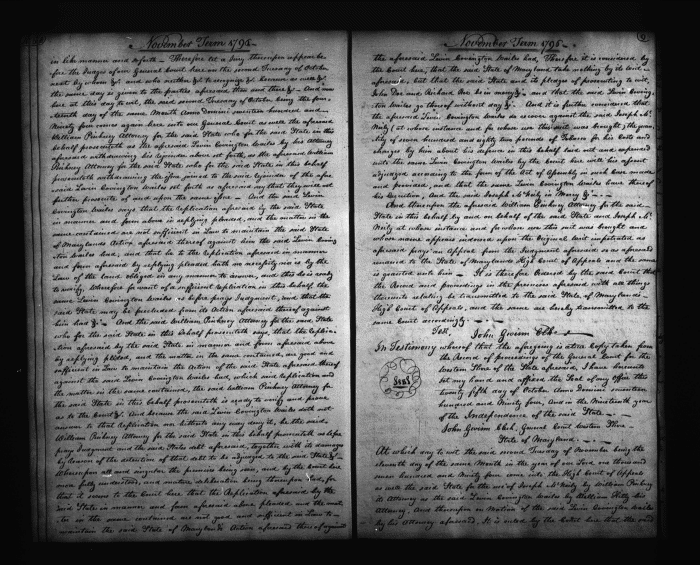 November Term 1795
in like manner and so forth. Therefore let a Jury thereupon appear be
fore the Judges of our General Court here on the second Tuesday of October
next by whom &c. and who neither &c. to recognize &c. because as well &c.
the same day is given to the parties aforesaid then and there &c. And now
here at this day to wit, the said second Tuesday of October being the four
teenth day of the same Month Anno Domini seventeen hundred and
Ninety four comes again here into our General Court as well the aforesaid
William Pinkney Attorney for the said State who for the said State in this
behalf prosecuteth as the aforesaid Levin Covington Wailes by his Attorney
aforesaid withdrawing his rejoinder above set forth, as the aforesaid William
Pinkney Attorney for the said State who for the said State in this behalf
prosecuteth withdrawing the issue joined to the said rejoinder of the afore
said Levin Covington Wailes set forth as aforesaid say that they will not
further prosecute of and upon the same issue. And the said Levin
Covington Wailes says that the Replication aforesaid by the said State
in manner and form above in replying pleaded, and the matter in the
same contained are not sufficient in Law to maintain the said State
of Marylands Action aforesaid thereof against him the said Levin Coving
ton Wailes had, and that he to the Replication aforesaid in manner
and form aforesaid by replying pleaded hath no necessity nor is by the
Law of the Land obliged in any manner to answer and this he is ready
to verify. Wherefore for want of a sufficient Replication in this behalf the
same Levin Covington Wailes as before prays Judgment, and that the
said State may be precluded from its Action aforesaid thereof against
him had &c. And the said William Pinkney Attorney for the said State
who for the said State in this behalf prosecuteth says, that the Replica
tion aforesaid by the said State in manner and form aforesaid above
by replying pleaded, and the matter in the same contained, are good and
sufficient in Law to maintain the Action of the said State aforesaid thereof
against the said Levin Covington Wailes had, which said Replication and
the matter in the same contained, the said William Pinkney Attorney for
the said State in this behalf prosecuteth is ready to verify and prove
as to the Court &c. And because the said Levin Covington Wailes doth not
answer to that Replication nor hitherto any way deny it, he the said
William Pinkney Attorney for the said State in this behalf prosecuteth as before
prays Judgment and the said States debt aforesaid, together with its damages
by reason of the detention of that debt to be adjudged to the said State &c.
Whereupon all and singular the premises being seen, and by the Court here
more fully understood, and mature deliberation being thereupon had, for
that it seems to the Court here that the Replication aforesaid by the
said State in manner and form aforesaid above pleaded and the mat
ter in the same contained are not good and sufficient in Law to
maintain the said State of Marylands Action aforesaid thereof against
November Term 1795.
the aforesaid Levin Covington Wailes had. Therefore it is considered by
the Court here, that the said State of Maryland take nothing by its writ
aforesaid, but that the said State and its pledges of prosecuting to wit,
John Doe and Richard Roe be in mercy &c. and that the said Levin Coving
ton Wailes go thereof without day &c. And it is further considered that
the aforesaid Levin Covington Wailes do recover against the said Joseph Mc
Neely (at whose instance and for whose use this suit was brought) the quan
tity of seven hundred and eighty two pounds of Tobacco for his Costs and
charges by him about his defence in this behalf laid out and expended
unto the said Levin Covington Wailes by the Court here with his assent
adjudged according to the form of the Act of Assembly in such Case made
and provided, and that the same Levin Covington Wailes have thereof
his Execution, And the said Joseph McNeely in Mercy &c.
And thereupon the aforesaid William Pinkney Attorney for the said
State in this behalf by and on behalf of the said State and Joseph Mc
Neely at whose instance and for whose use this suit was brought and
whose name appears indorsed upon the Original writ impetrated as
aforesaid prays an Appeal from the Judgment aforesaid so as aforesaid
rendered to the State of Marylands High Court of Appeals and the same
is granted unto him. It is therefore Ordered by the said Court that
the Record and proceedings in the premises aforesaid with all things
thereunto relating be transmitted to the said State of Marylands
High Court of Appeals, and the same are hereby transmitted to the
same Court accordingly.
Test. John Gwinn Clk.
In Testimony whereof that the foregoing is a true Copy taken from
the Record of proceedings of the General Court for the
Western Shore of the State aforesaid, I have hereunto
set my hand and affixed the Seal of my Office this
twenty fifth day of October Anno Domini seventeen
hundred and Ninety four, And in the Nineteenth year
of the Independence of the said State
Seal
John Gwinn Clerk, General Court Western Shore
State of Maryland.
At which day to wit the said second Tuesday of November being the
eleventh day of the same Month in the year of our Lord one thousand
seven hundred and Ninety four come into the High Court of Appeals
as well the said State for the use of Joseph McNeely by William Pinkney
its Attorney as the said Levin Covington Wailes by William Kilty his
Attorney, And thereupon on Motion of the said Levin Covington Wailes
by his Attorney aforesaid. It is ruled by the Court here that the said